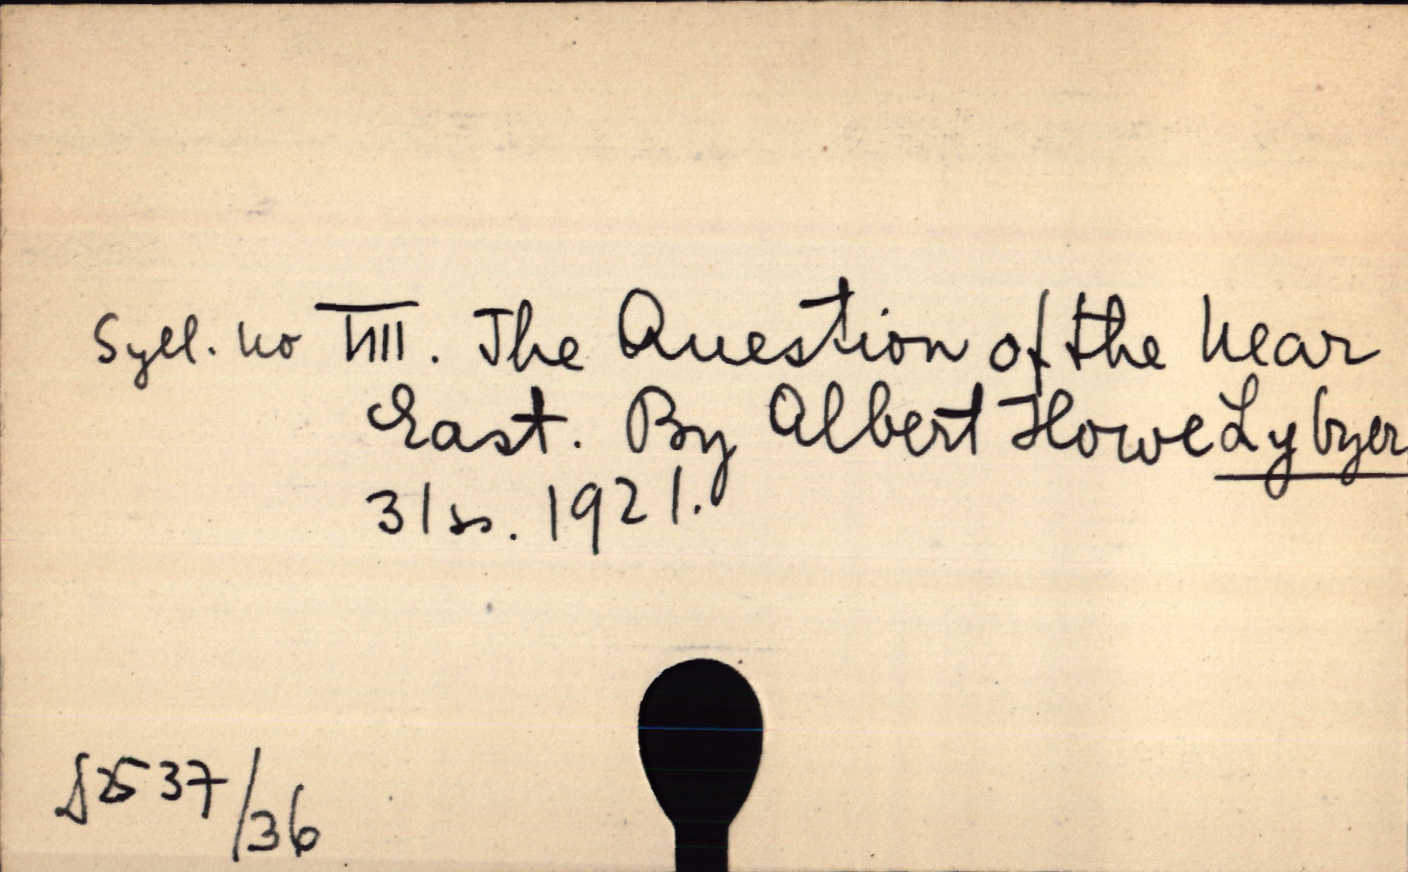 Syll. no VIII. The Question of the Near
East. By Albert Howe Lybyer
31 ss. 1921.
S2537/36